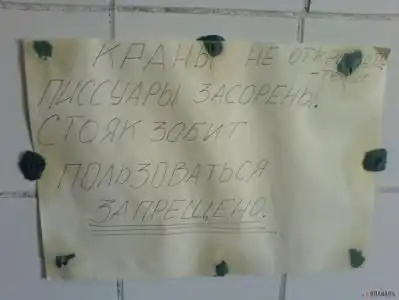 КРАНЫ НЕ ОТКРЫВАТЬ
ПИССУАРЫ ЗАСОРЕНЫ!
СТОЯК ЗАБИТ
ПОЛЬЗОВАТЬСЯ
ЗАПРЕЩЕНО.